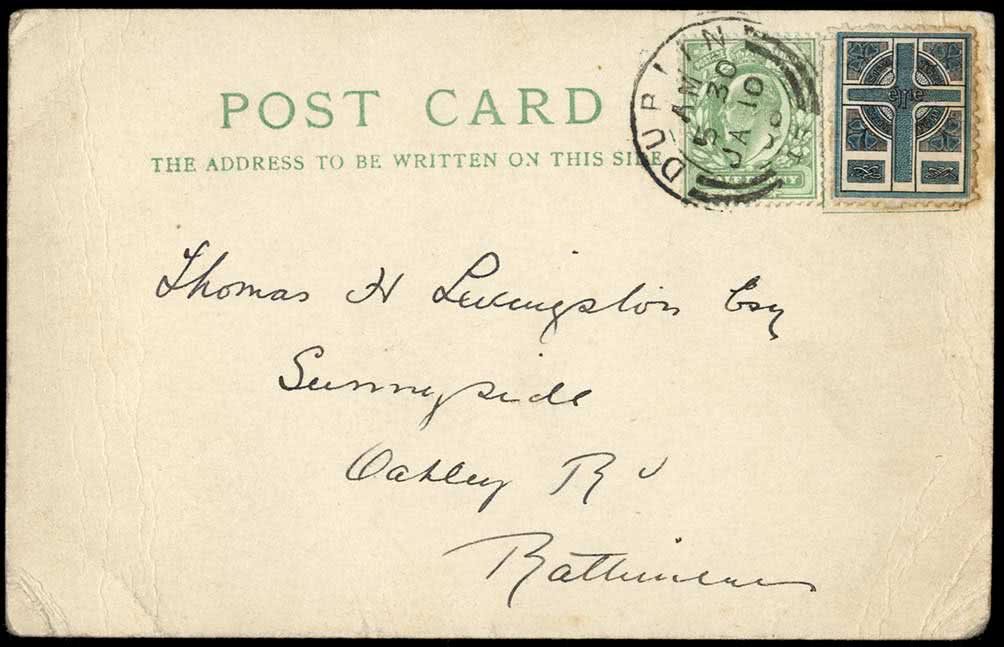 POST CARD
THE ADDRESS TO BE WRITTEN ON THIS SIDE
DUBLIN
5 30 AM
JA 10
08
éire
Thomas H Livingston Esq
Sunnyside
Oakley Rd
Rathmines